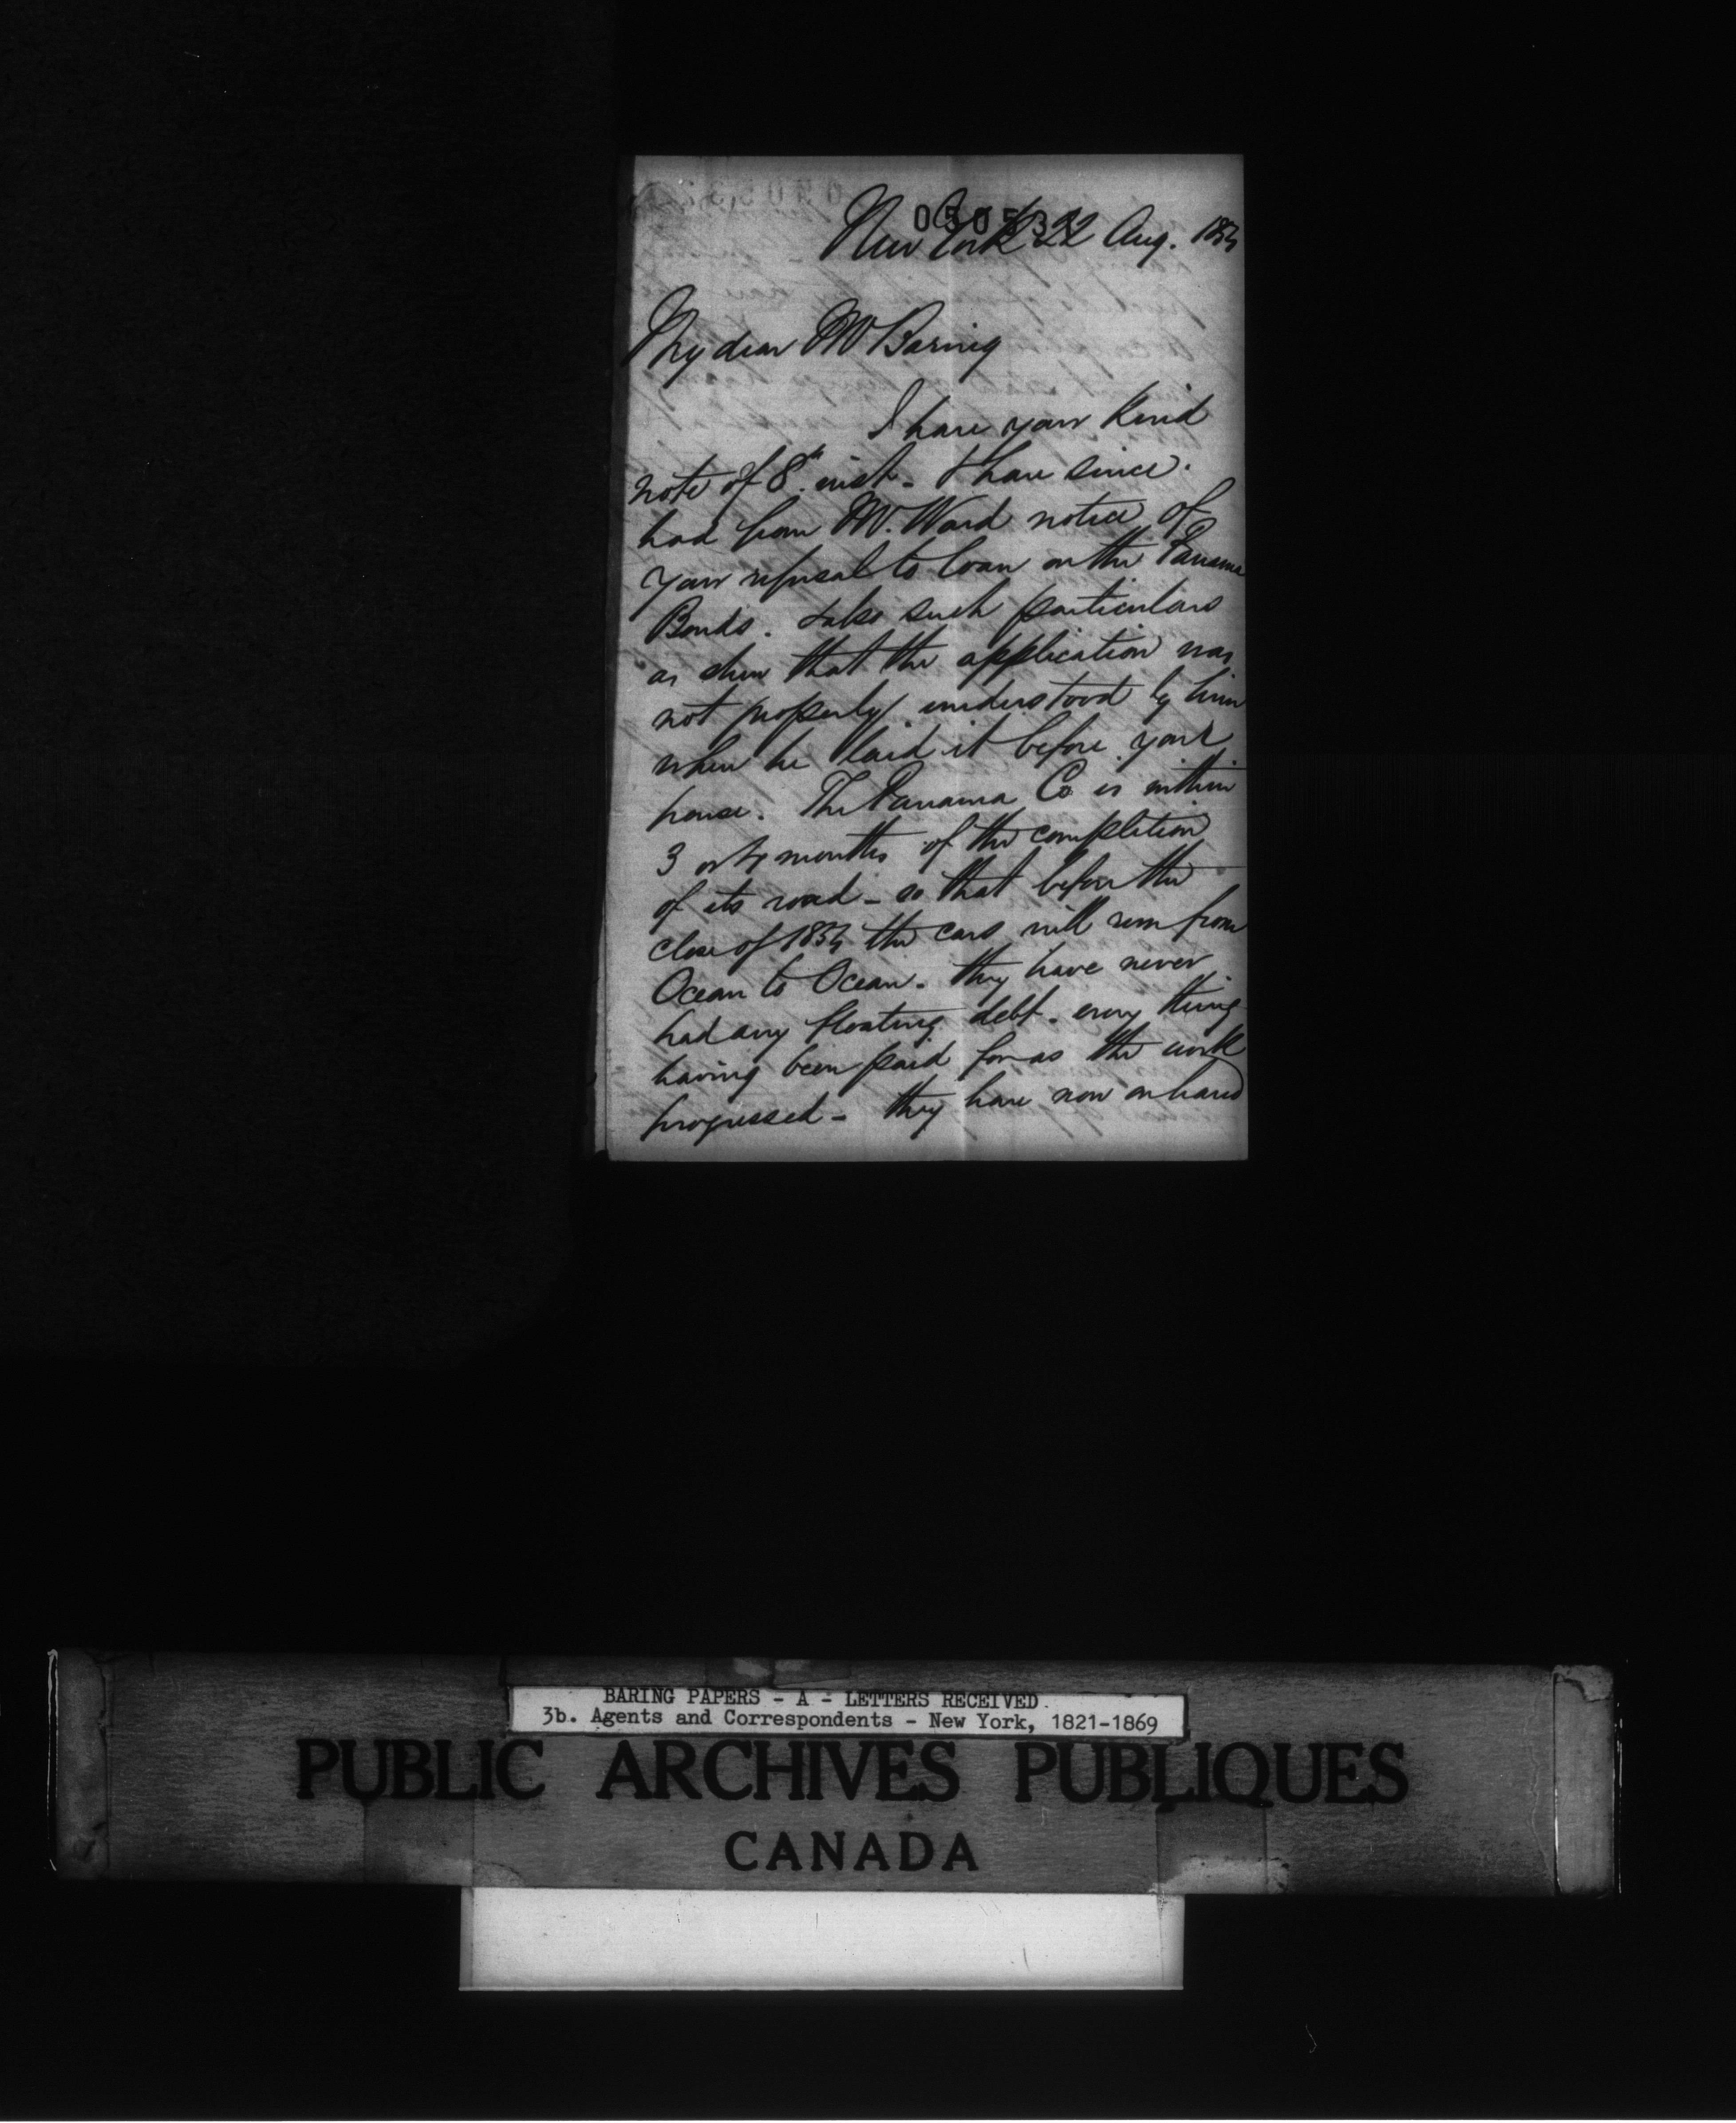 New York 22 Aug. 1854
My dear Mr Baring
I have your kind
note of 8th inst. I have since
had from Mr. Ward notice of
your refusal to loan on the Panama
Bonds. & also such particulars
as shew that the application was
not properly understood by him
when he laid it before your
house. The Panama Co is within
3 or 4 months of the completion
of its road - so that before the
close of 1854 the cars will run from
Ocean to Ocean. they have never
had any floating debt. every thing
having been paid for as the work
progressed - they have now on hand
BARING PAPERS - A - LETTERS RECEIVED.
3b. Agents and Correspondents - New York, 1821-1869
PUBLIC ARCHIVES PUBLIQUES
CANADA